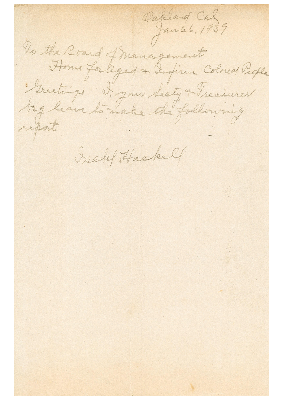 Oakland Cal
Jan 26, 1939
To the Board of Management
Home for Aged & Infirm Colored People
Greetings I your Secty & Treasurer
beg leave to make the following
report
Haskell